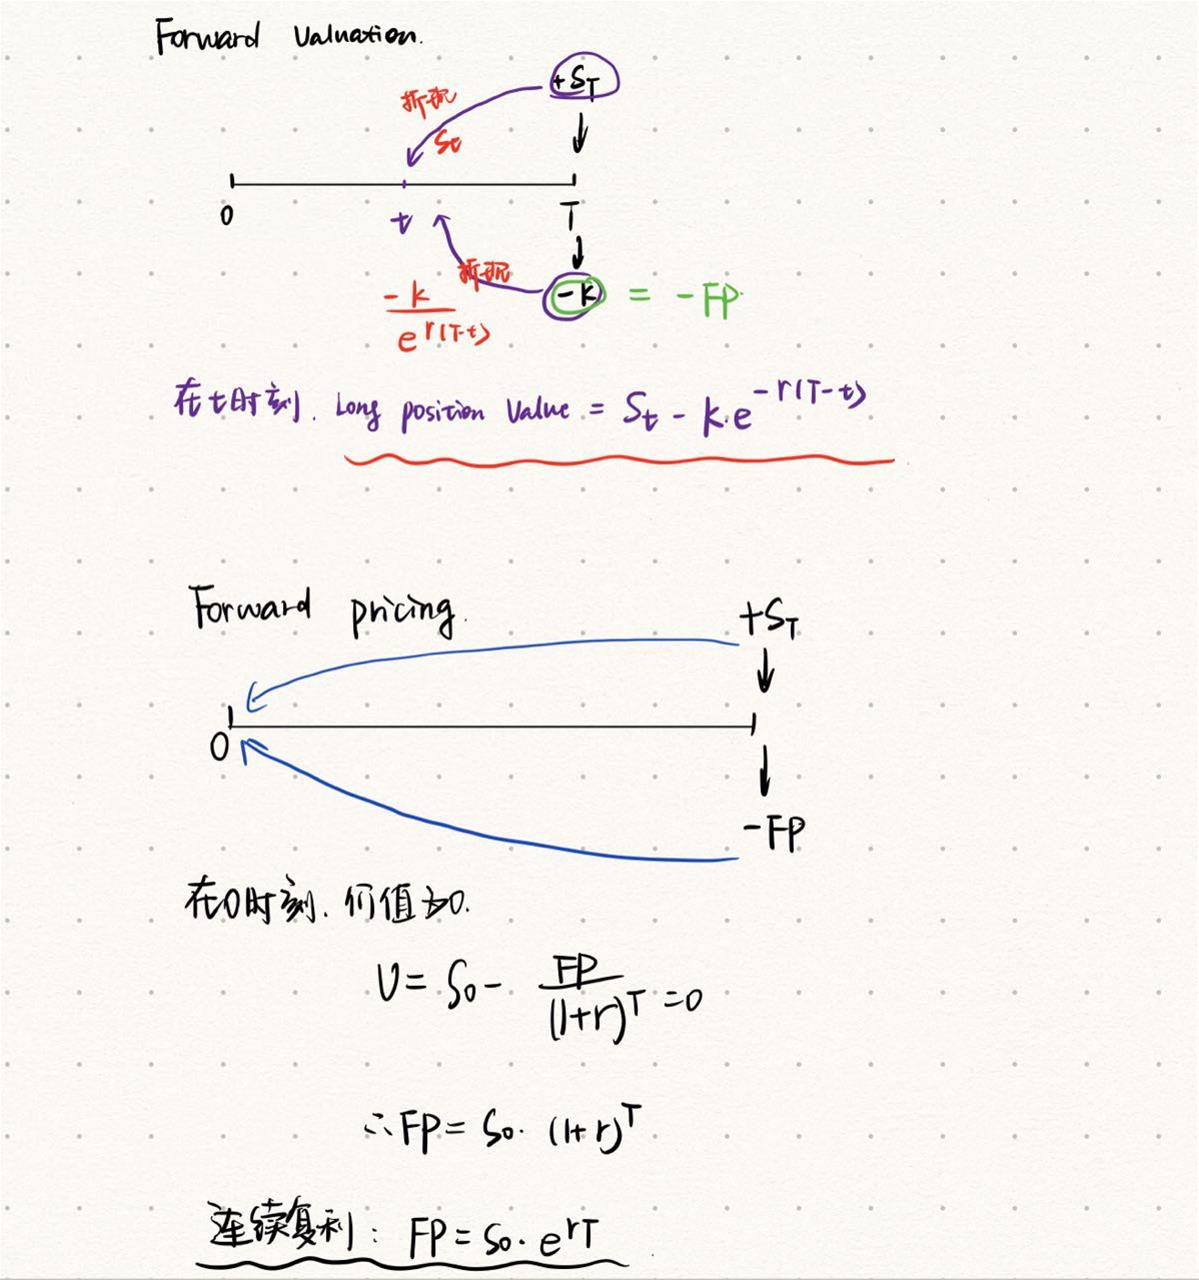 Forward Valuation.
+S_T
折现
S_t
0
t
T
折现
-k = -FP
-k / e^{r(T-t)}
在t时刻. Long position Value = S_t - k·e^{-r(T-t)}
Forward pricing.
+S_T
0
-FP
在0时刻. 价值为0.
V = S_0 - FP/(1+r)^T = 0
∴FP = S_0·(1+r)^T
连续复利: FP = S_0·e^{rT}